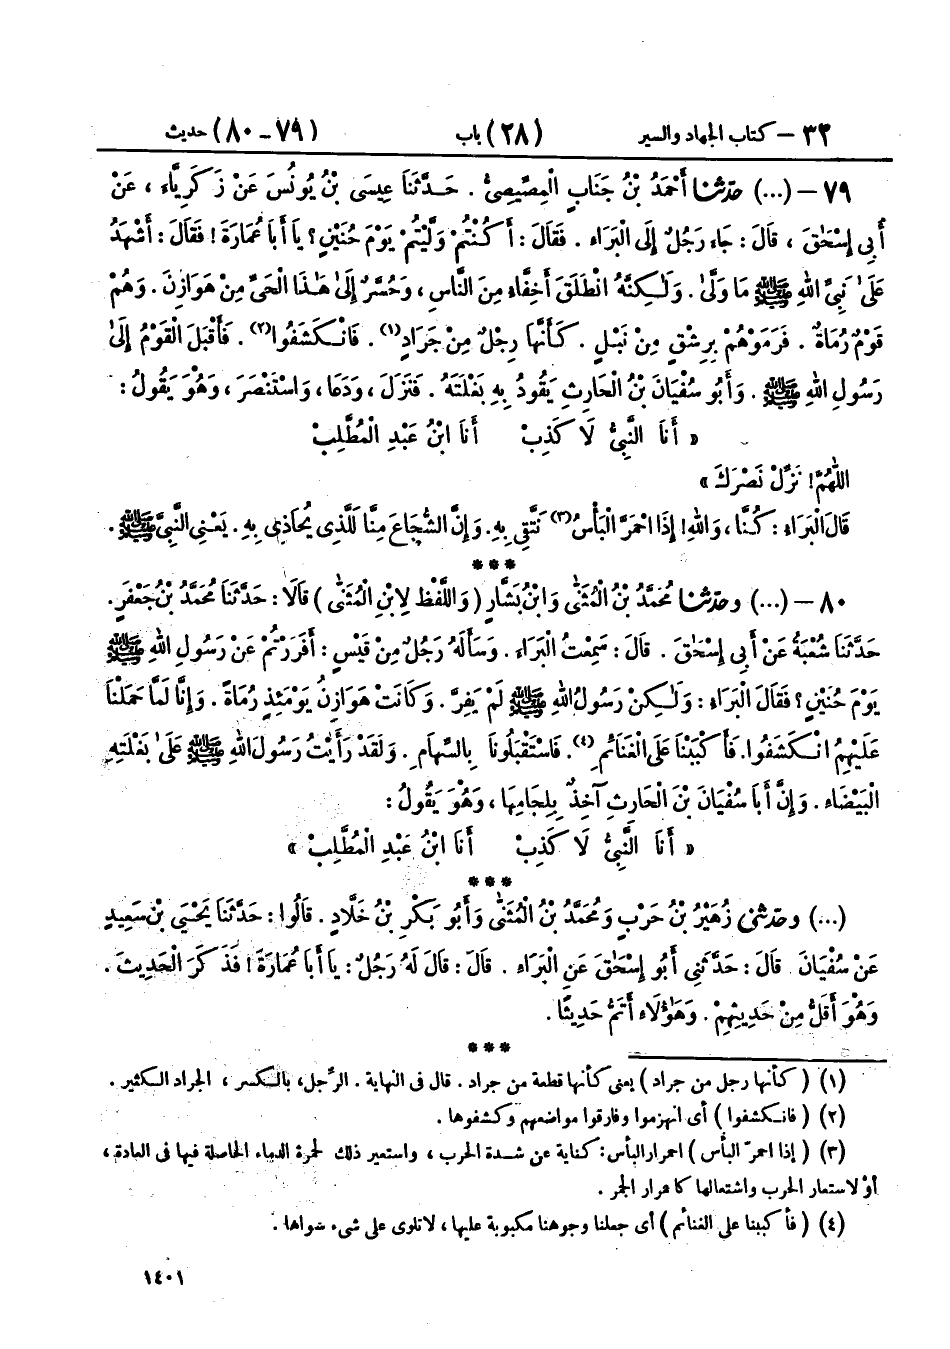 ٣٢ – كتاب الجهاد والسير (٢٨) باب (٧٩–٨٠) حديث
٧٩ – (...) حدّثنا أَحْمَدُ بْنُ جَنَابٍ الْمِصِّيصِيُّ . حَدَّثَنَا عِيسَى بْنُ يُونُسَ عَنْ زَكَرِيَّاءَ ، عَنْ
أَبِي إِسْحَٰقَ ، قَالَ : جَاء رَجُلٌ إِلَى الْبَرَاءِ . فَقَالَ : أَكُنْتُمْ وَلَّيْتُمْ يَوْمَ حُنَيْنٍ ؟ يا أَبَا عُمَارَةَ ! فَقَالَ : أَشْهَدُ
عَلَىٰ نَبِيِّ اللهِ ﷺ مَا وَلَّىٰ . وَلَٰكِنَّهُ انْطَلَقَ أَخِفَّاءُ مِنَ النَّاسِ ، وَحُسَّرٌ إِلَىٰ هَٰذَا الْحَيِّ مِنْ هَوَازِنَ . وَهُمْ
قَوْمٌ رُمَاةٌ . فَرَمَوْهُمْ بِرِشْقٍ مِنْ نَبْلٍ . كَأَنَّهَا رِجْلٌ مِنْ جَرَادٍ(١) . فَانْكَشَفُوا(٢) . فَأَقْبَلَ الْقَوْمُ إِلَىٰ
رَسُولِ اللهِ ﷺ . وَأَبُو سُفْيَانَ بْنُ الْحَارِثِ يَقُودُ بِهِ بَغْلَتَهُ . فَنَزَلَ ، وَدَعَا ، وَاسْتَنْصَرَ ، وَهُوَ يَقُولُ :
« أَنَا النَّبِيُّ لَا كَذِبْ أَنَا ابْنُ عَبْدِ الْمُطَّلِبْ
اللَّهُمَّ ! نَزِّلْ نَصْرَكَ »
قَالَ الْبَرَاءِ : كُنَّا ، وَاللهِ ! إِذَا احْمَرَّ الْبَأْسُ(٣) نَتَّقِي بِهِ . وَإِنَّ الشُّجَاعَ مِنَّا لَلَّذِي يُحَاذِي بِهِ . يَعْنِي النَّبِيَّ ﷺ .
***
٨٠ – (...) وحدّثنا مُحَمَّدُ بْنُ الْمُثَنَّى وَابْنُ بَشَّارٍ ( وَاللَّفْظُ لِابْنِ الْمُثَنَّى ) قَالَا : حَدَّثَنَا مُحَمَّدُ بْنُ جَعْفَرٍ .
حَدَّثَنَا شُعْبَةُ عَنْ أَبِي إِسْحَٰقَ . قَالَ : سَمِعْتُ الْبَرَاءَ . وَسَأَلَهُ رَجُلٌ مِنْ قَيْسٍ : أَفَرَرْتُمْ عَنْ رَسُولِ اللهِ ﷺ
يَوْمَ حُنَيْنٍ ؟ فَقَالَ الْبَرَاءِ : وَلَٰكِنْ رَسُولُ اللهِ ﷺ لَمْ يَفِرَّ . وَكَانَتْ هَوَازِنُ يَوْمَئِذٍ رُمَاةً . وَإِنَّا لَمَّا حَمَلْنَا
عَلَيْهِمُ انْكَشَفُوا . فَأَكْبَبْنَا عَلَى الْغَنَائِمِ(٤) . فَاسْتَقْبَلُونَا بِالسِّهَامِ . وَلَقَدْ رَأَيْتُ رَسُولَ اللهِ ﷺ عَلَىٰ بَغْلَتِهِ
الْبَيْضَاءِ . وَإِنَّ أَبَا سُفْيَانَ بْنَ الْحَارِثِ آخِذٌ بِلِجَامِهَا ، وَهُوَ يَقُولُ :
« أَنَا النَّبِيُّ لَا كَذِبْ أَنَا ابْنُ عَبْدِ الْمُطَّلِبْ »
***
(...) وحدّثني زُهَيْرُ بْنُ حَرْبٍ وَمُحَمَّدُ بْنُ الْمُثَنَّى وَأَبُو بَكْرِ بْنُ خَلَّادٍ . قَالُوا : حَدَّثَنَا يَحْيَى بْنُ سَعِيدٍ
عَنْ سُفْيَانَ قَالَ : حَدَّثَنِي أَبُو إِسْحَٰقَ عَنِ الْبَرَاءِ . قَالَ : قَالَ لَهُ رَجُلٌ : يا أَبَا عُمَارَةَ ! فَذَكَرَ الْحَدِيثَ .
وَهُوَ أَقَلُّ مِنْ حَدِيثِهِمْ . وَهَٰؤُلَاءِ أَتَمُّ حَدِيثًا .
***
(١) ( كأنها رجل من جراد ) يعنى كأنها قطعة من جراد . قال فى النهاية . الرِّجل، بالكسر ، الجراد الكثير .
(٢) ( فانكشفوا ) أى انهزموا وفارقوا مواضعهم وكشفوها .
(٣) ( إذا احمرّ البأس ) احمرار البأس : كناية عن شدة الحرب ، واستعير ذلك لحمرة الدماء الحاصلة فيها فى العادة ،
أوْ لاستعار الحرب واشتعالها كاحمرار الجمر .
(٤) ( فأكببنا على الغنائم ) أى جعلنا وجوهنا مكبوبة عليها ، لا تلوى على شىء سواها .
١٤٠١